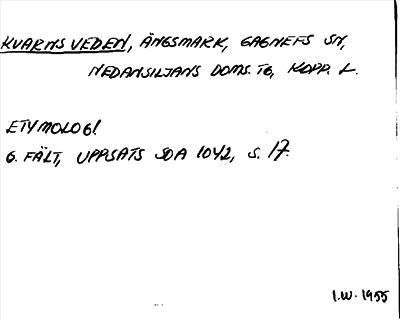 KVARNSVEDEN, ÄNGSMARK, GAGNEFS SN,
NEDANSILJANS DOMS. TG, KOPP. L.
ETYMOLOGI
G. FÄLT, UPPSATS SOA 1042, S. 17.
I.W. 1955